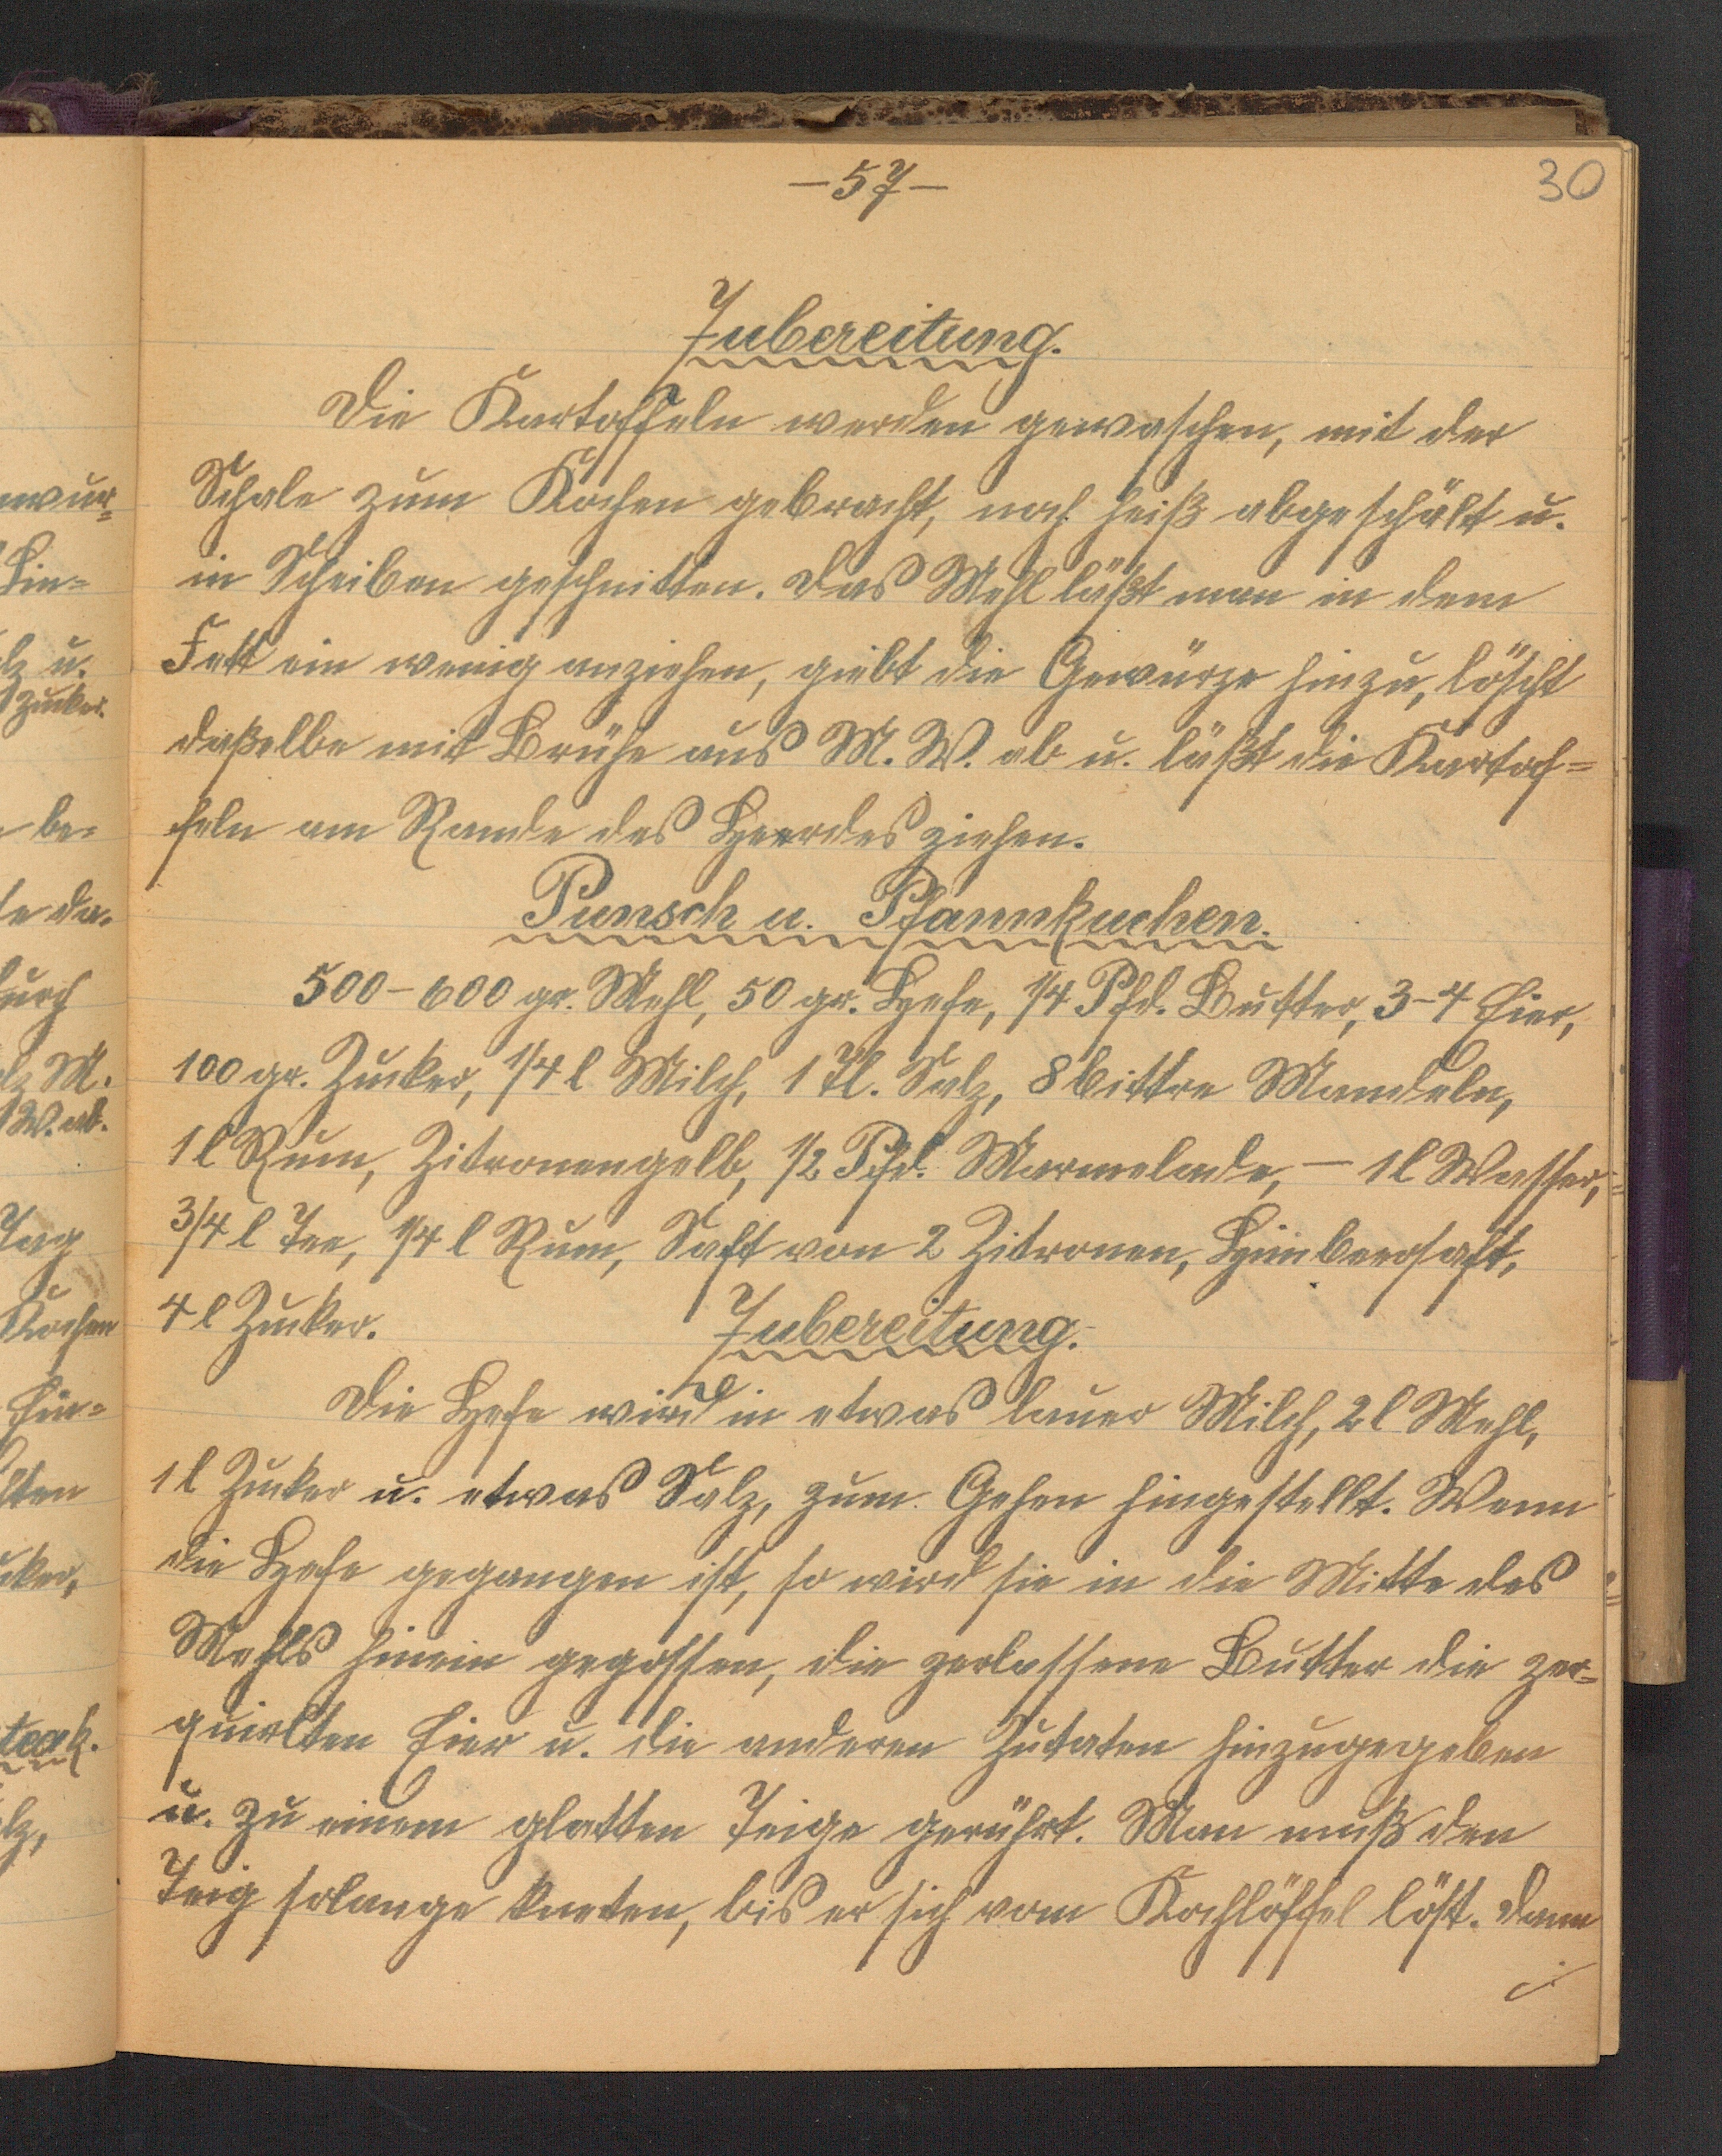 -57-
30
Zubereitung.
Die Kartoffeln werden gewaschen, mit der
Schale zum Kochen gebracht, noch heiß abgeschält u.
in Scheiben geschnitten. Das Mehl läßt man in dem
Fett ein wenig anziehen, giebt die Gewürze hinzu, löscht
daßelbe mit Brühe aus M. W. ab u. läßt die Kartof=
feln am Rande des Heerdes ziehen.
Punsch u. Pfannkuchen.
500-600 gr. Mehl, 50 gr. Hefe, 1/4 Pfd. Butter, 3-4 Eier,
100 gr. Zucker, 1/4 l Milch, 1 Tl. Salz, 8 bittre Mandeln,
1 l Rum, Zitronengelb, 1/2 Pfd. Marmelade, — 1 l Wasser,
3/4 l Tee, 1/4 l Rum, Saft von 2 Zitronen, Himbeersaft,
4 l Zucker.
Zubereitung.
Die Hefe wird in etwas lauer Milch, 2 l Mehl,
1 l Zucker u. etwas Salz, zum Gehen hingestellt. Wenn
die Hefe gegangen ist, so wird sie in die Mitte des
Mehls hinein gegossen, die zerlassene Butter die zer=
quirlten Eier u. die anderen Zutaten hinzugegeben
u. zu einem glatten Teige gerührt. Man muß den
Teig solange kneten, bis er sich vom Kochlöffel löst. Dann